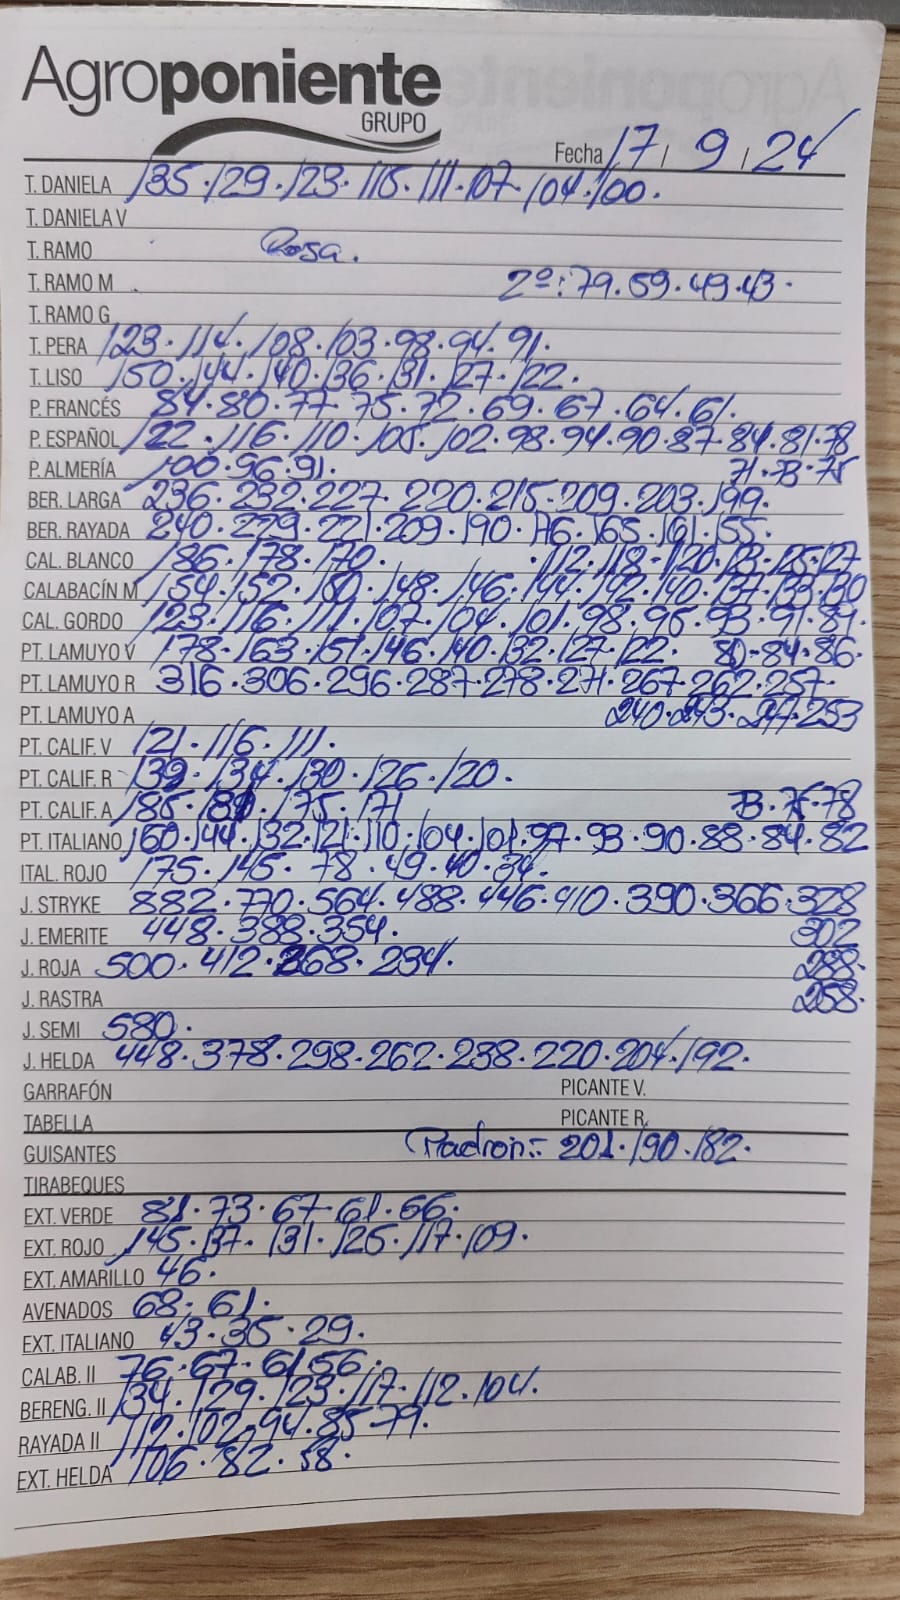 Agroponiente
GRUPO
Fecha 17 / 9 / 24
T. DANIELA 135 · 129 · 123 · 115 · 111 · 107 · 104 · 100 ·
T. DANIELA V
T. RAMO Rosa .
T. RAMO M 2º: 79 . 59 . 49 . 43 ·
T. RAMO G
T. PERA 123 · 114 · 108 · 103 · 98 · 94 · 91 ·
T. LISO 150 · 144 · 140 · 136 · 131 · 127 · 122 ·
P. FRANCÉS 84 · 80 · 77 · 75 · 72 · 69 · 67 · 64 · 61 ·
P. ESPAÑOL 122 · 116 · 110 · 105 · 102 · 98 · 94 · 90 · 87 · 84 · 81 · 78
P. ALMERÍA 100 · 96 · 91 · 71 · 73 · 75
BER. LARGA 236 · 232 · 227 · 220 · 215 · 209 · 203 · 199 ·
BER. RAYADA 240 · 229 · 221 · 209 · 190 · 176 · 165 · 161 · 155 ·
CAL. BLANCO 186 · 178 · 170 · 112 · 118 · 120 · 123 · 125 · 127
CALABACÍN M 154 · 152 · 150 · 148 · 146 · 144 · 142 · 140 · 137 · 133 · 130
CAL. GORDO 123 · 116 · 111 · 107 · 104 · 101 · 98 · 95 · 93 · 91 · 89 ·
PT. LAMUYO V 178 · 163 · 151 · 146 · 140 · 132 · 127 · 122 · 80 · 84 · 86 ·
PT. LAMUYO R 316 · 306 · 296 · 287 · 278 · 271 · 267 · 262 · 257 ·
PT. LAMUYO A 240 · 243 · 247 · 253
PT. CALIF. V 121 · 116 · 111 ·
PT. CALIF. R 139 · 134 · 130 · 126 · 120 ·
PT. CALIF. A 185 · 175 · 171 73 · 75 · 78
PT. ITALIANO 160 · 144 · 132 · 121 · 110 · 104 · 101 · 97 · 93 · 90 · 88 · 84 · 82
ITAL. ROJO 175 · 145 · 78 · 49 · 40 · 34 ·
J. STRYKE 882 · 770 · 564 · 488 · 446 · 410 · 390 · 366 · 328
J. EMERITE 448 · 388 · 354 · 302
J. ROJA 500 · 412 · 368 · 234 · 288 ·
J. RASTRA 258 ·
J. SEMI 580 ·
J. HELDA 448 · 378 · 298 · 262 · 238 · 220 · 204 · 192 ·
GARRAFÓN PICANTE V.
TABELLA PICANTE R.
GUISANTES Padron:- 201 · 190 · 182 ·
TIRABEQUES
EXT. VERDE 81 · 73 · 67 · 61 · 56 ·
EXT. ROJO 145 · 137 · 131 · 125 · 117 · 109 ·
EXT. AMARILLO 46 ·
AVENADOS 68 · 61 ·
EXT. ITALIANO 43 · 35 · 29 ·
CALAB. II 76 · 67 · 61 · 56 ·
BERENG. II 134 · 129 · 123 · 117 · 112 · 104 ·
RAYADA II 112 · 102 · 94 · 85 · 79 ·
EXT. HELDA 106 · 82 · 58 ·